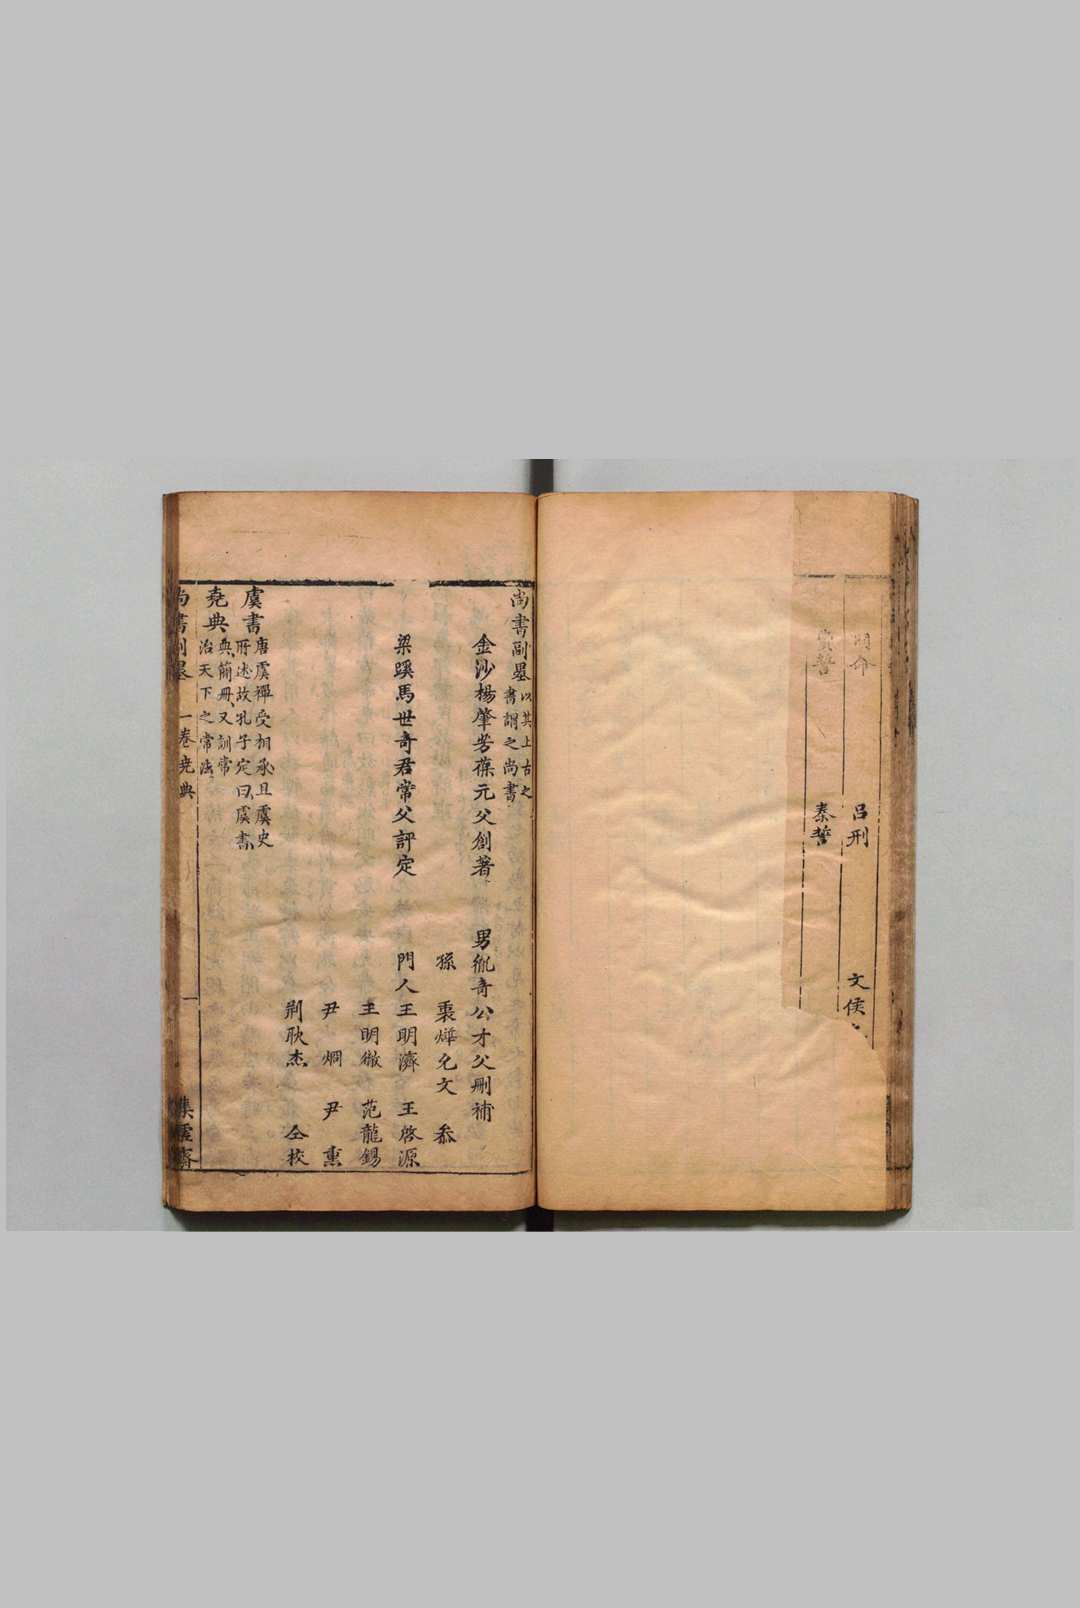 呂刑
文侯
費誓
秦誓
尚書副墨 以其上古之書謂之尚書
金沙楊肇芳葆元父創著 男胤奇公才父刪補
孫 㮚燁允文 叅
梁蹊馬世奇君常父評定 門人王明濟 王啓源
王明徹 范龍錫
尹烱 尹熏
荆耿杰 仝校
虞書 唐虞禪受相承且虞史所述故孔子定曰虞書
堯典 典簡冊又訓常治天下之常法
尚書副墨 一卷堯典 一 集虛齋